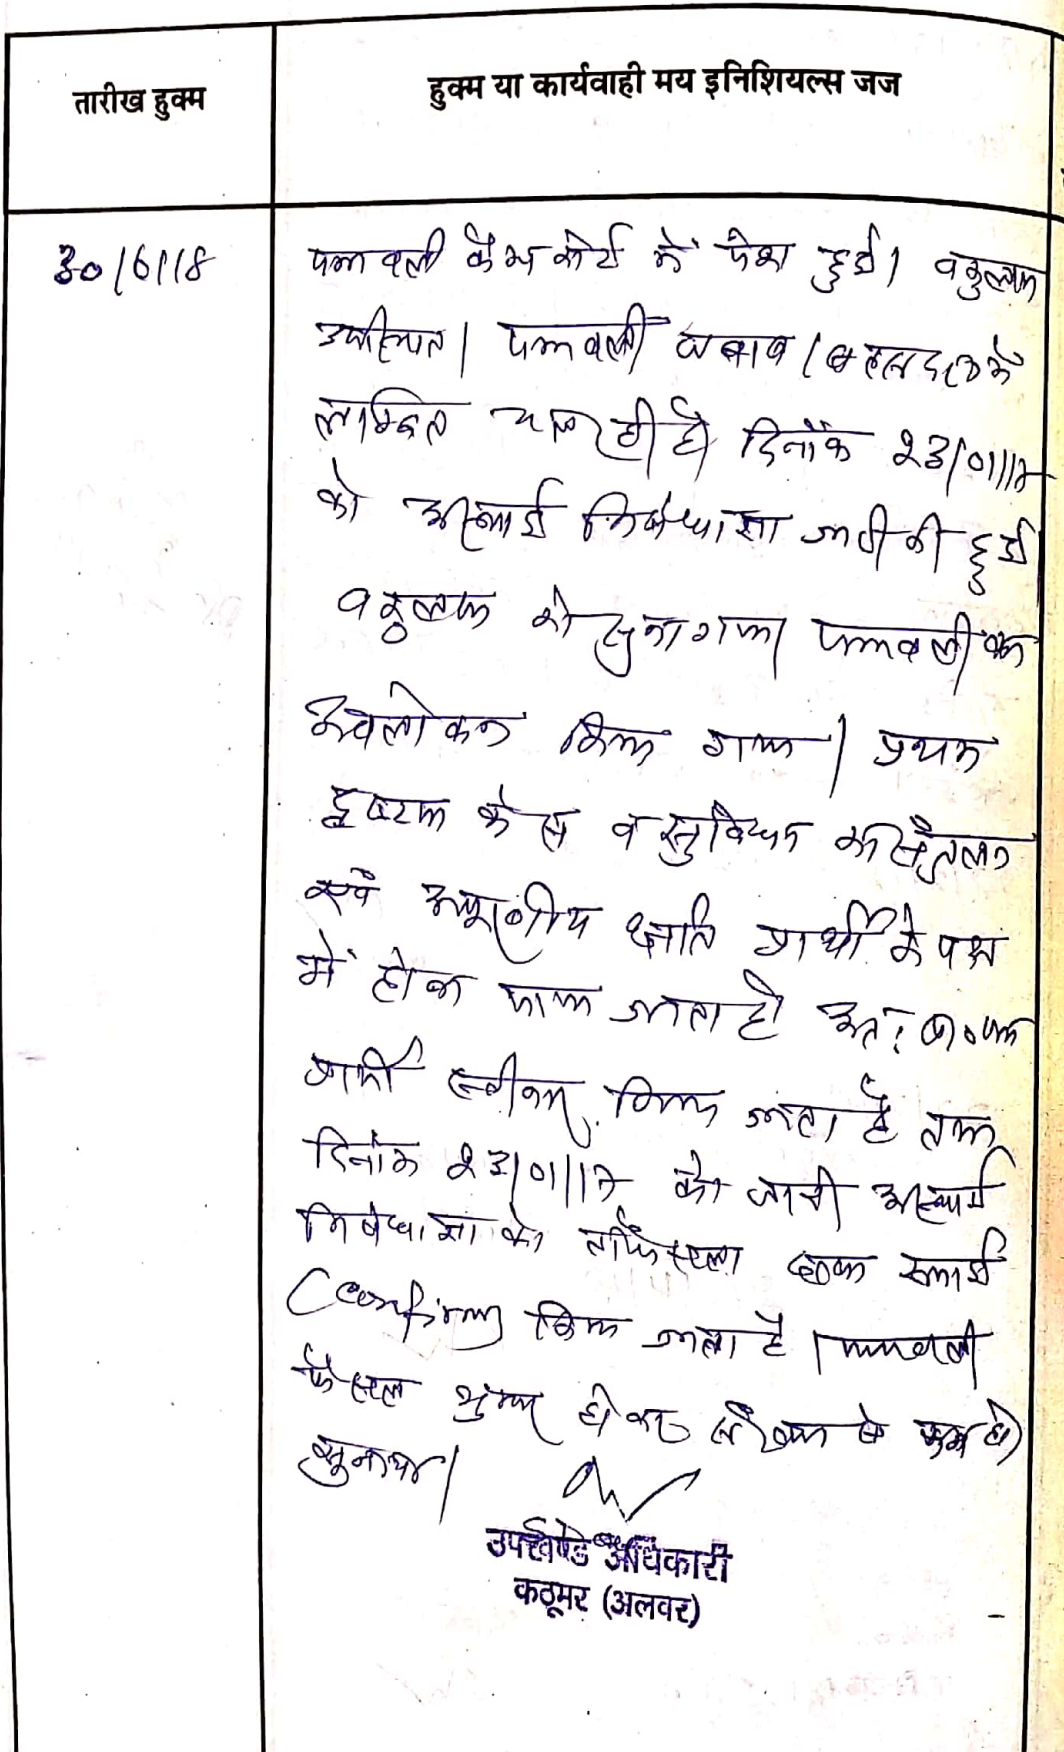 तारीख हुक्म
हुक्म या कार्यवाही मय इनिशियल्स जज
30/6/18
पत्रावली कैम्प कोर्ट में पेश हुई। वकुलाय
उपस्थित। पत्रावली जवाब / बहस में
लम्बित चल रही है। दिनाँक 23/01/17
को अस्थाई निषेधाज्ञा जारी की हुई
वकुलाय को सुना गया। पत्रावली का
अवलोकन किया गया। प्रथम
दृष्टया केस व सुविधा का संतुलन
एवं अपूरणीय क्षति प्रार्थी के पक्ष
में होना पाया जाता है अतः प्रा०पत्र
प्रार्थी स्वीकार किया जाता है तथा
दिनांक 23/01/17 को जारी अस्थाई
निषेधाज्ञा को ताफैसला स्थाई
Confirm किया जाता है। पत्रावली
फैसल शुमार होकर संख्या से कम हो
सुनाया।
उपखण्ड अधिकारी
कठूमर (अलवर)